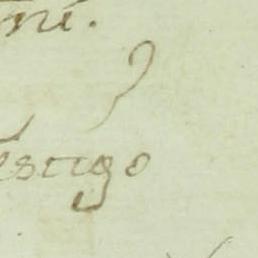 mi.
estigo